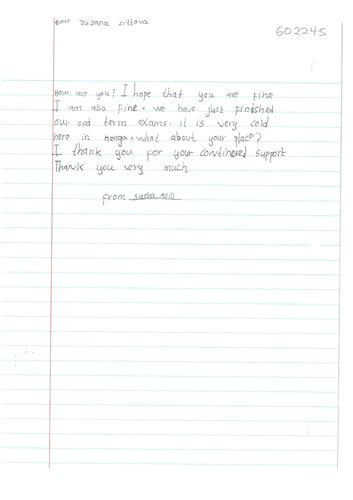 Dear Zuzana Zittova
602245
How are you? I hope that you are fine
I am also fine. we have just finished
our end term exams. it is very cold
here in Kenga. what about your place?
I thank you for your continered support
Thank you very much
from